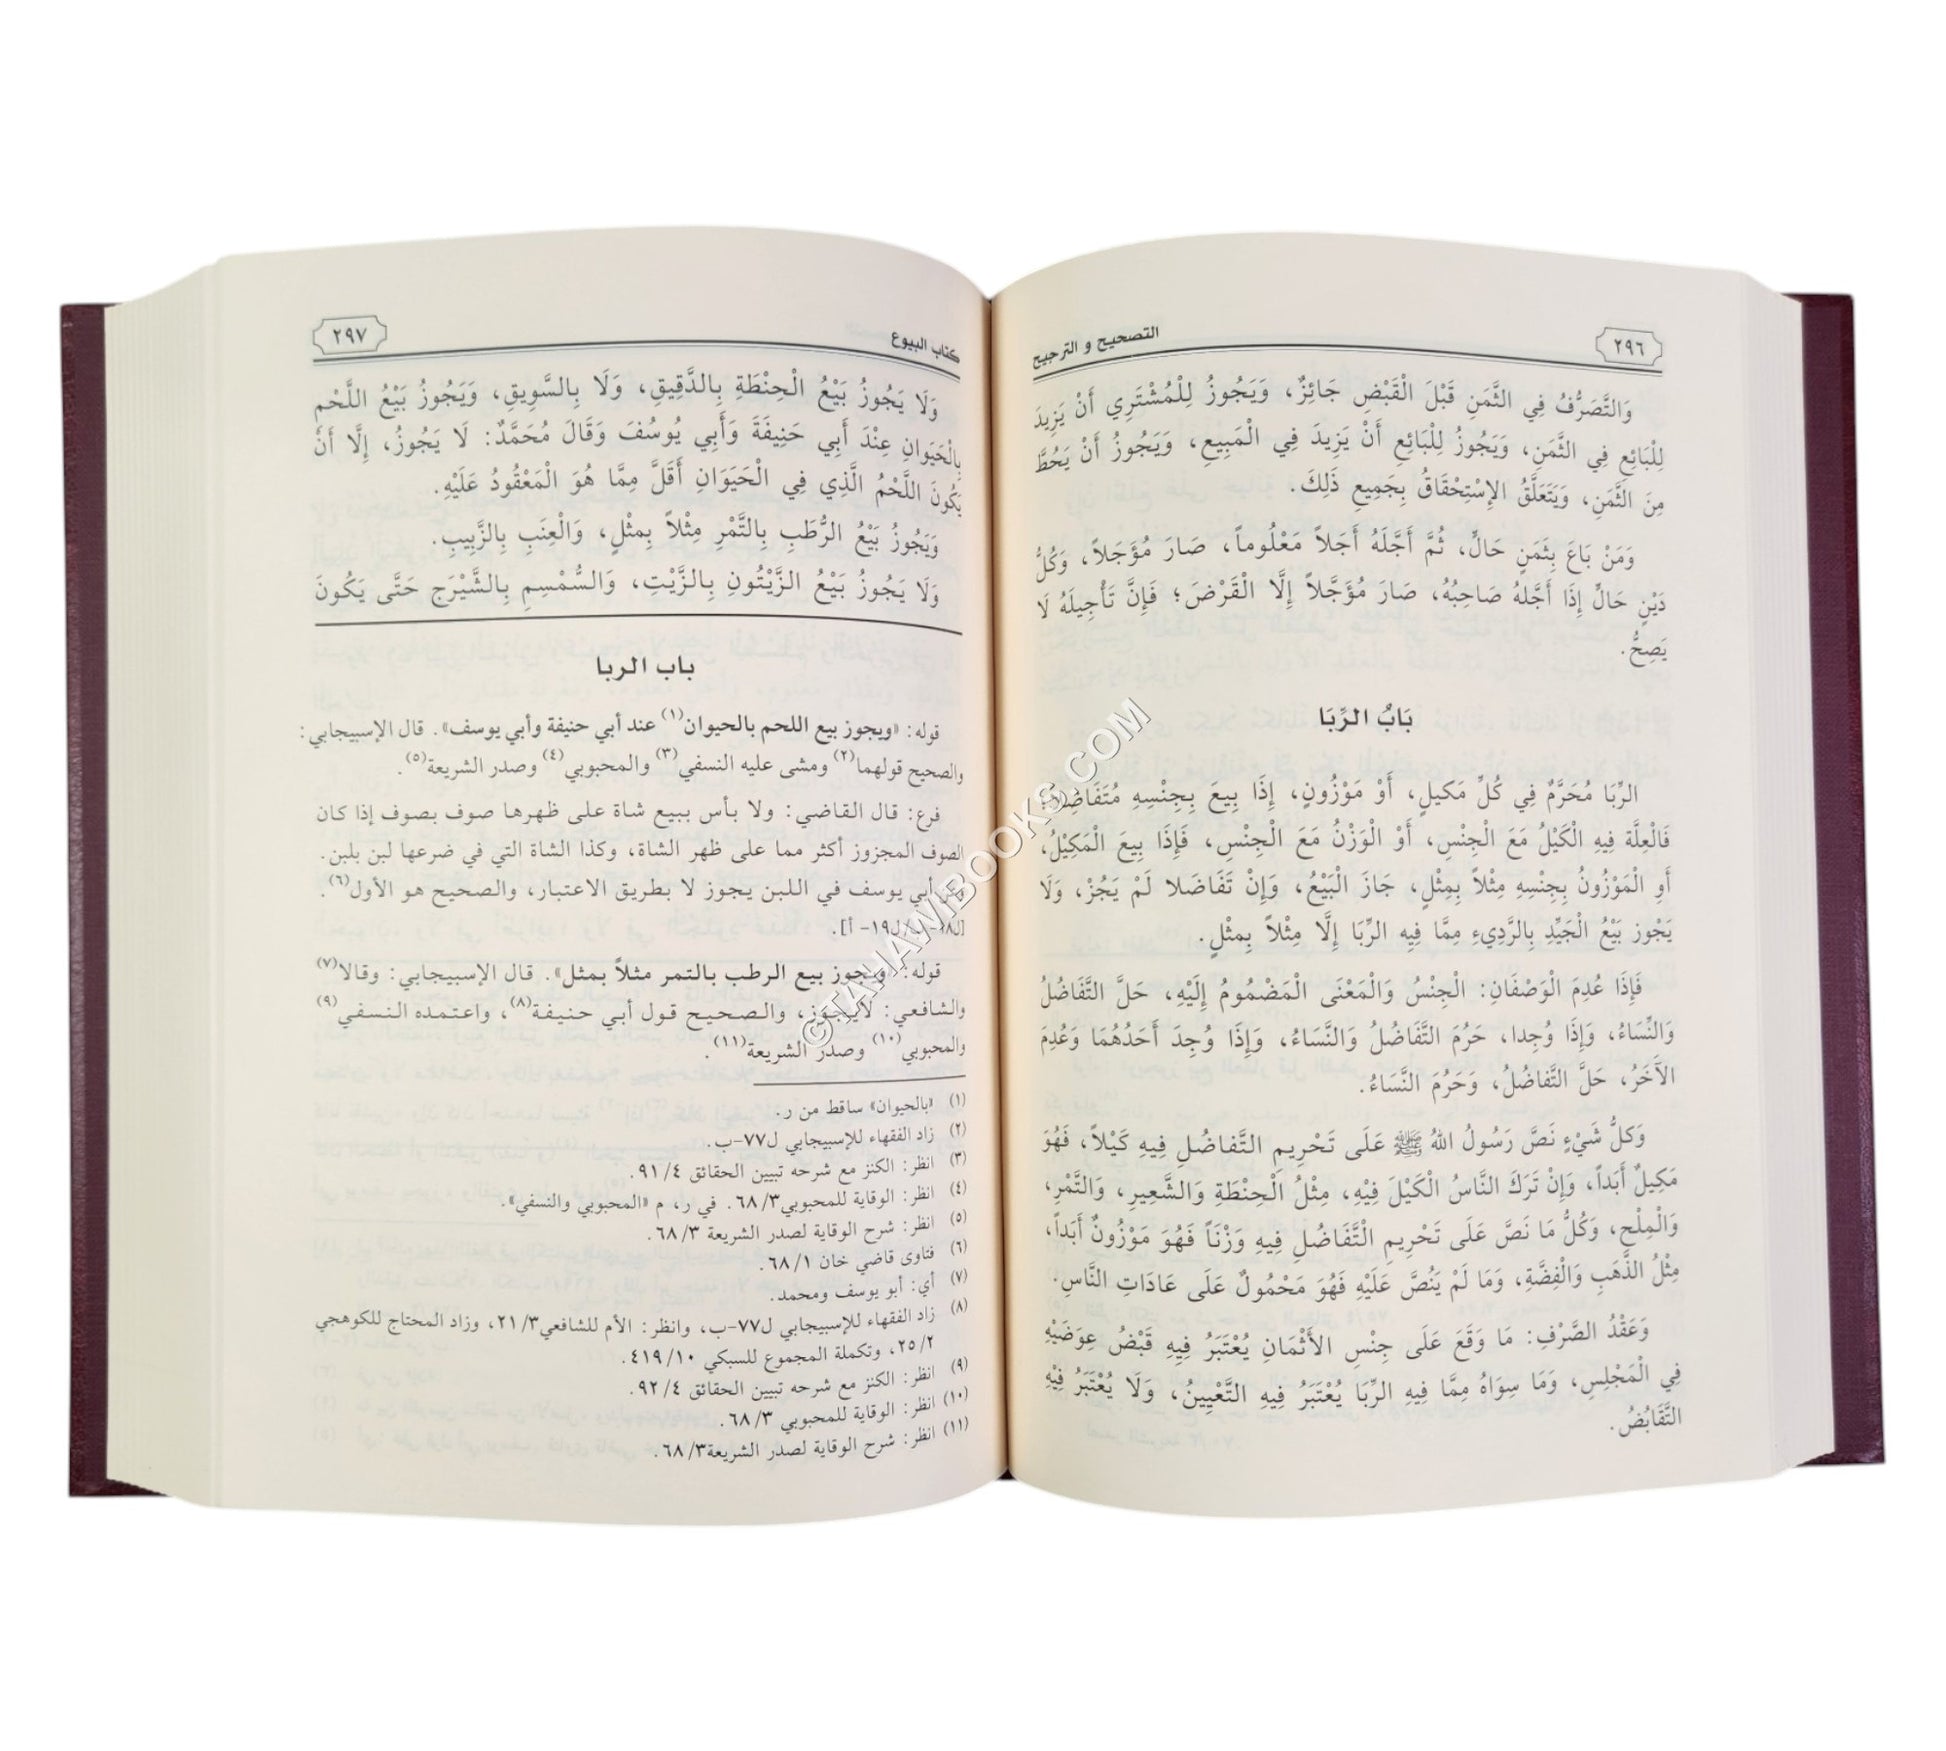 ٢٩٦
التصحيح و الترجيح
وَالتَّصَرُّفُ فِي الثَّمَنِ قَبْلَ الْقَبْضِ جَائِزٌ، وَيَجُوزُ لِلْمُشْتَرِي أَنْ يَزِيدَ
لِلْبَائِعِ فِي الثَّمَنِ، وَيَجُوزُ لِلْبَائِعِ أَنْ يَزِيدَ فِي الْمَبِيعِ، وَيَجُوزُ أَنْ يَحُطَّ
مِنَ الثَّمَنِ، وَيَتَعَلَّقُ الإِسْتِحْقَاقُ بِجَمِيعِ ذَلِكَ.
وَمَنْ بَاعَ بِثَمَنٍ حَالٍّ، ثُمَّ أَجَّلَهُ أَجَلاً مَعْلُوماً، صَارَ مُؤَجَّلاً، وَكُلُّ
دَيْنٍ حَالٍّ إِذَا أَجَّلهُ صَاحِبُهُ، صَارَ مُؤَجَّلاً إِلَّا الْقَرْضَ؛ فَإِنَّ تَأْجِيلَهُ لَا
يَصِحُّ.
بَابُ الرِّبَا
الرِّبَا مُحَرَّمٌ فِي كُلِّ مَكيلٍ، أَوْ مَوْزُونٍ، إِذَا بِيعَ بِجِنْسِهِ مُتَفَاضِلاً؛
فَالْعِلَّة فِيهِ الْكَيْلُ مَعَ الْجِنْسِ، أَوْ الْوَزْنُ مَعَ الْجِنْسِ، فَإِذَا بِيعَ الْمَكِيْلُ،
أَوِ الْمَوْزُونُ بِجِنْسِهِ مِثْلاً بِمِثْلٍ، جَازَ الْبَيْعُ، وَإِنْ تَفَاضَلا لَمْ يَجُزْ، وَلَا
يَجْوز بَيْعُ الْجَيِّدِ بِالرَّدِيءِ مِمَّا فِيهِ الرِّبَا إِلَّا مِثْلاً بِمِثْلٍ.
فَإِذَا عُدِمَ الْوَصْفَانِ: الْجِنْسُ وَالْمَعْنَى الْمَضْمُومُ إِلَيْهِ، حَلَّ التَّفَاضُلُ
وَالنِّسَاءُ، وَإِذَا وُجِدا، حَرُمَ التَّفَاضُلُ وَالنَّسَاءُ، وَإِذَا وُجِدَ أَحَدُهُمَا وَعُدِمَ
الآخَرُ، حَلَّ التَّفَاضُلُ، وَحَرُمَ النَّسَاءُ.
وَكلُّ شَيْءٍ نَصَّ رَسُولُ اللهُ ﷺ عَلَى تَحْرِيمِ التَّفاضُلِ فِيهِ كَيْلاً، فَهُوَ
مَكِيلٌ أَبَداً، وَإِنْ تَرَكَ النَّاسُ الْكَيْلَ فِيْهِ، مِثْلُ الْحِنْطَةِ وَالشَّعِيرِ، وَالتَّمْرِ،
وَالْمِلْحِ، وَكُلُّ مَا نَصَّ عَلَى تَحْرِيمِ التَّفَاضُلِ فِيهِ وَزْنَاً فَهُوَ مَوْزُونٌ أَبَداً،
مِثْلُ الذَّهَبِ وَالْفِضَّةِ، وَمَا لَمْ يَنُصَّ عَلَيْهِ فَهُوَ مَحْمُولٌ عَلَى عَادَاتِ النَّاسِ.
وَعَقْدُ الصَّرْفِ: مَا وَقَعَ عَلَى جِنْسِ الأَثْمَانِ يُعْتَبَرُ فِيهِ قَبْضُ عِوَضَيْهِ
فِي الْمَجْلِسِ، وَمَا سِوَاهُ مِمَّا فِيهِ الرِّبَا يُعْتَبَرُ فِيهِ التَّعْيِينُ، وَلَا يُعْتَبَرُ فِيْهِ
التَّقَابُضُ.
كتاب البيوع
٢٩٧
وَلَا يَجُوزُ بَيْعُ الْحِنْطَةِ بِالدَّقِيقِ، وَلَا بِالسَّوِيقِ، وَيَجُوزُ بَيْعُ اللَّحْمِ
بِالْحَيَوَانِ عِنْدَ أَبِي حَنِيفَةَ وَأَبِي يُوسُفَ وَقَالَ مُحَمَّدٌ: لَا يَجُوزُ، إِلَّا أَنْ
يَكُونَ اللَّحْمُ الَّذِي فِي الْحَيَوَانِ أَقَلَّ مِمَّا هُوَ الْمَعْقُودُ عَلَيْهِ.
وَيَجُوزُ بَيْعُ الرُّطَبِ بِالتَّمْرِ مِثْلاً بِمثْلٍ، وَالْعِنَبِ بِالزَّبِيبِ.
وَلَا يَجُوزُ بَيْعُ الزَّيْتُونِ بِالزَّيْتِ، وَالسُّمْسِمِ بِالشَّيْرَجِ حَتَّى يَكُونَ
باب الربا
قوله: «ويجوز بيع اللحم بالحيوان(١) عند أبي حنيفة وأبي يوسف». قال الإسبيجابي:
والصحيح قولهما(٢) ومشى عليه النسفي(٣) والمحبوبي(٤) وصدر الشريعة(٥).
فرع: قال القاضي: ولا بأس ببيع شاة على ظهرها صوف بصوف إذا كان
الصوف المجزوز أكثر مما على ظهر الشاة، وكذا الشاة التي في ضرعها لبن بلبن.
وعن أبي يوسف في اللبن يجوز لا بطريق الاعتبار، والصحيح هو الأول(٦).
[ل١٨-ب/ل١٩-أ].
قوله: «ويجوز بيع الرطب بالتمر مثلاً بمثل». قال الإسبيجابي: وقالا(٧)
والشافعي: لا يجوز، والصحيح قول أبي حنيفة(٨)، واعتمده النسفي(٩)
والمحبوبي(١٠) وصدر الشريعة(١١).
(١) «بالحيوان» ساقط من ر.
(٢) زاد الفقهاء للإسبيجابي ل٧٧-ب.
(٣) انظر: الكنز مع شرحه تبيين الحقائق ٩١/٤.
(٤) انظر: الوقاية للمحبوبي٦٨/٣. في ر، م «المحبوبي والنسفي».
(٥) انظر: شرح الوقاية لصدر الشريعة ٦٨/٣.
(٦) فتاوى قاضي خان ٦٨/١.
(٧) أي: أبو يوسف ومحمد.
(٨) زاد الفقهاء للإسبيجابي ل٧٧-ب، وانظر: الأم للشافعي٢١/٣، وزاد المحتاج للكوهجي
٢٥/٢، وتكملة المجموع للسبكي ٤١٩/١٠.
(٩) انظر: الكنز مع شرحه تبيين الحقائق ٩٢/٤.
(١٠) انظر: الوقاية للمحبوبي ٦٨/٣.
(١١) انظر: شرح الوقاية لصدر الشريعة٦٨/٣.
©TAHAWIBOOKS.COM